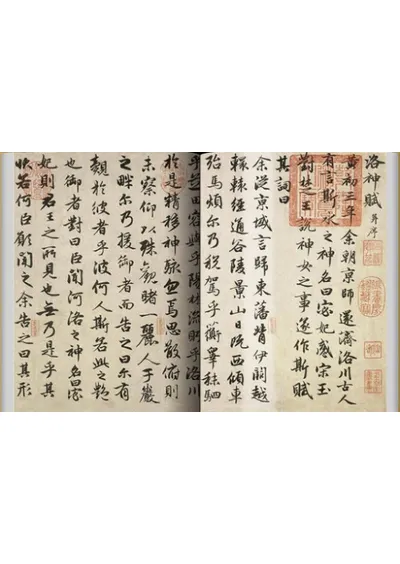 洛神賦 并序
黃初三年余朝京師還濟洛川古人
有言斯水之神名曰宓妃感宋玉
對楚王說神女之事遂作斯賦
其詞曰
余從京城言歸東藩背伊闕越
轘轅經通谷陵景山日既西傾車
殆馬煩尔乃稅駕乎蘅皋秣駟
乎芝田容與乎陽林流眄乎洛川
於是精移神駭忽焉思散俯則
未察仰以殊觀睹一麗人于巖
之畔尔乃援御者而告之曰尔有
覿於彼者乎彼何人斯若此之艷
也御者對曰臣聞河洛之神名曰宓
妃則君王之所見也無乃是乎其
狀若何臣願聞之余告之曰其形